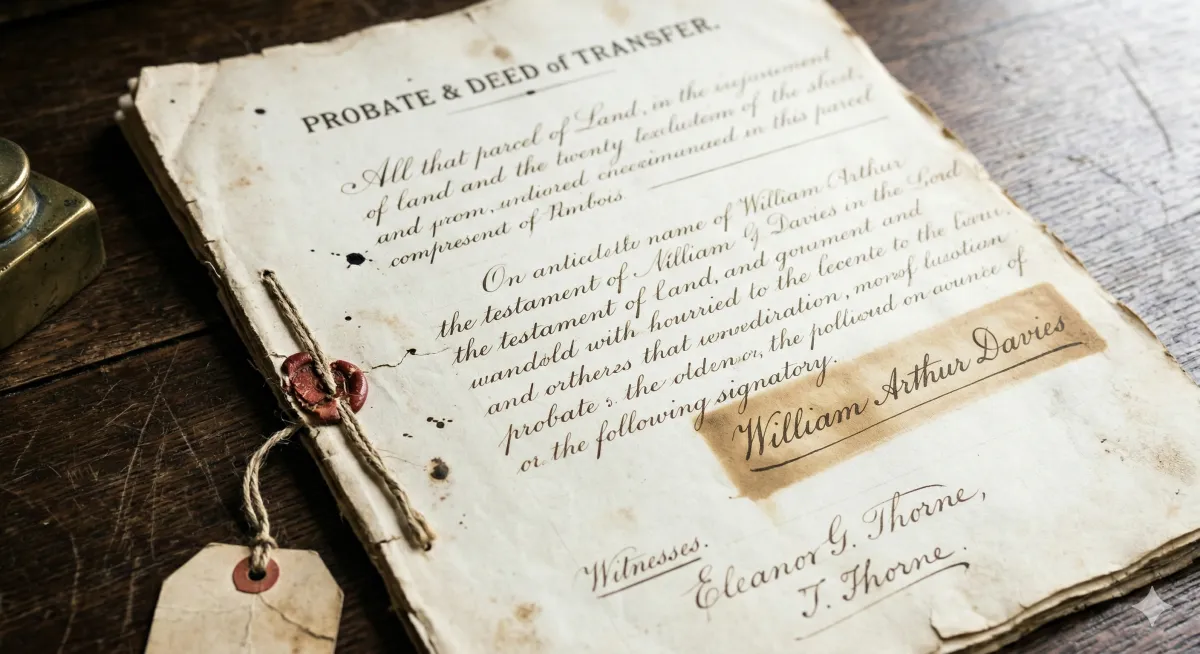 PROBATE & DEED of TRANSFER.
All that parcel of Land, in the
of land and the twenty of the shest,
and prom, undiored in this parcel
compresend of Ambois.
On name of William Arthur
the testament of Nilliam G Davies in the Lord
the testament of land, and gonument and
wandold with hourried to the lecente to the
and ortheres that morsf
probate : the the on of
or the following signatory.
William Arthur Davies
Witnesses.
Eleanor G. Thorne,
T. Thorne.